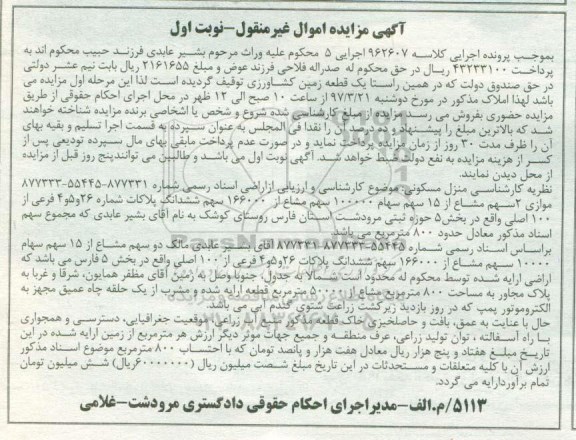 آگهی مزایده اموال غیرمنقول-نوبت اول
بموجب پرونده اجرایی کلاسه ۹۶۲۶۰۷ اجرایی ۵ محکوم علیه وراث مرحوم بشیر عابدی فرزند حبیب محکوم اند به
پرداخت ۴۳۲۳۳۱۰۰ ریال در حق محکوم له صدراله فلاحی فرزند عوض و مبلغ ۲۱۶۱۶۵۵ ریال بابت نیم عشر دولتی
در حق صندوق دولت که در همین راستا یک قطعه زمین کشاورزی توقیف گردیده است لذا این مرحله اول مزایده می
باشد لهذا املاک مذکور در مورخ دوشنبه ۹۷/۳/۲۱ از ساعت ۱۰ صبح الی ۱۲ ظهر در محل اجرای احکام حقوقی از طریق
مزایده حضوری بفروش می رسد کارشناسی شده شروع و شخص یا اشخاصی برنده مزایده شناخته خواهند
شد که بالاترین مبلغ را پیشنهاد و را نقدا فی المجلس به عنوان سپرده به قسمت اجرا تسلیم و بقیه بهای
آن را ظرف مدت ۳۰ روز از زمان مزایده پرداخت نماید و در صورت عدم پرداخت مابقی بهای مال سپرده تودیعی پس از
کسر از هزینه مزایده به نفع دولت ضبط خواهد شد. آگهی نوبت اول می باشد و طالبین می توانند پنج روز قبل از مزایده
از محل دیدن نمایند.
نظریه کارشناسی منزل مسکونی موضوع کارشناسی و ارزیابی ازاراضی اسناد رسمی شماره ۸۷۷۳۳۱-۵۵۴۴۵-۸۷۷۳۳۳
موازی ۲سهم مشاع از ۱۵ سهم سهام ۱۰۰۰۰۰ سهم مشاع از ۱۶۶۰۰۰ سهم ششدانگ پلاکات شماره ۲۶و۵و۴ فرعی از
۱۰۰ اصلی واقع در بخش۵ حوزه ثبتی مرودشت استان فارس روستای کوشک به نام آقای بشیر عابدی که مجموع سهم
اسناد مذکور معادل حدود ۸۰۰ مترمربع می باشد
براساس اسناد رسمی شماره ۵۵۴۴۵-۸۷۷۳۳۳-۸۷۷۳۳۱ آقای بشیر عابدی مالک دو سهم مشاع از ۱۵ سهم سهام
۱۰۰۰۰ سهم مشاع از ۱۶۶۰۰۰ سهم ششدانگ پلاکات ۲۶و۵و۴ فرعی از ۱۰۰ اصلی واقع در بخش ۵ فارس می باشد که
اراضی ارایه شده توسط محکوم له محدود است شمالا به جدول، جنوبا وصل به زمین آقای مظفر همایون، شرقا و غربا به
پلاک مجاور به مساحت ۸۰۰ مترمربع مشاع از ۵۰۰۰ مترمربع قطعه ارایه شده و مشرب از یک حلقه چاه عمیق مجهز به
الکتروموتور پمپ که در روز بازدید زیرکشت زراعت شتوی گندم آبی می باشد.
حال با عنایت به عمق، بافت و حاصلخیزی خاک قطعه مذکور، نوع اراضی زراعی، موقعیت جغرافیایی، دسترسی و همجواری
با راه آسفالته ، توان تولید زراعی، عرف منطقه و جمیع جهات موثر دیگر ارزش هر مترمربع از زمین ارایه شده در این
تاریخ مبلغ هفتاد و پنج هزار ریال معادل هفت هزار و پانصد تومان که با احتساب ۸۰۰ مترمربع موضوع اسناد مذکور
ارزش آن با کلیه متعلقات و مستحدثات در این تاریخ مبلغ شصت میلیون ریال (۶۰۰۰۰۰۰۰ریال) شش میلیون تومان
تمام برآوردارایه می گردد.
۵۱۱۳/م.الف-مدیراجرای احکام حقوقی دادگستری مرودشت-غلامی